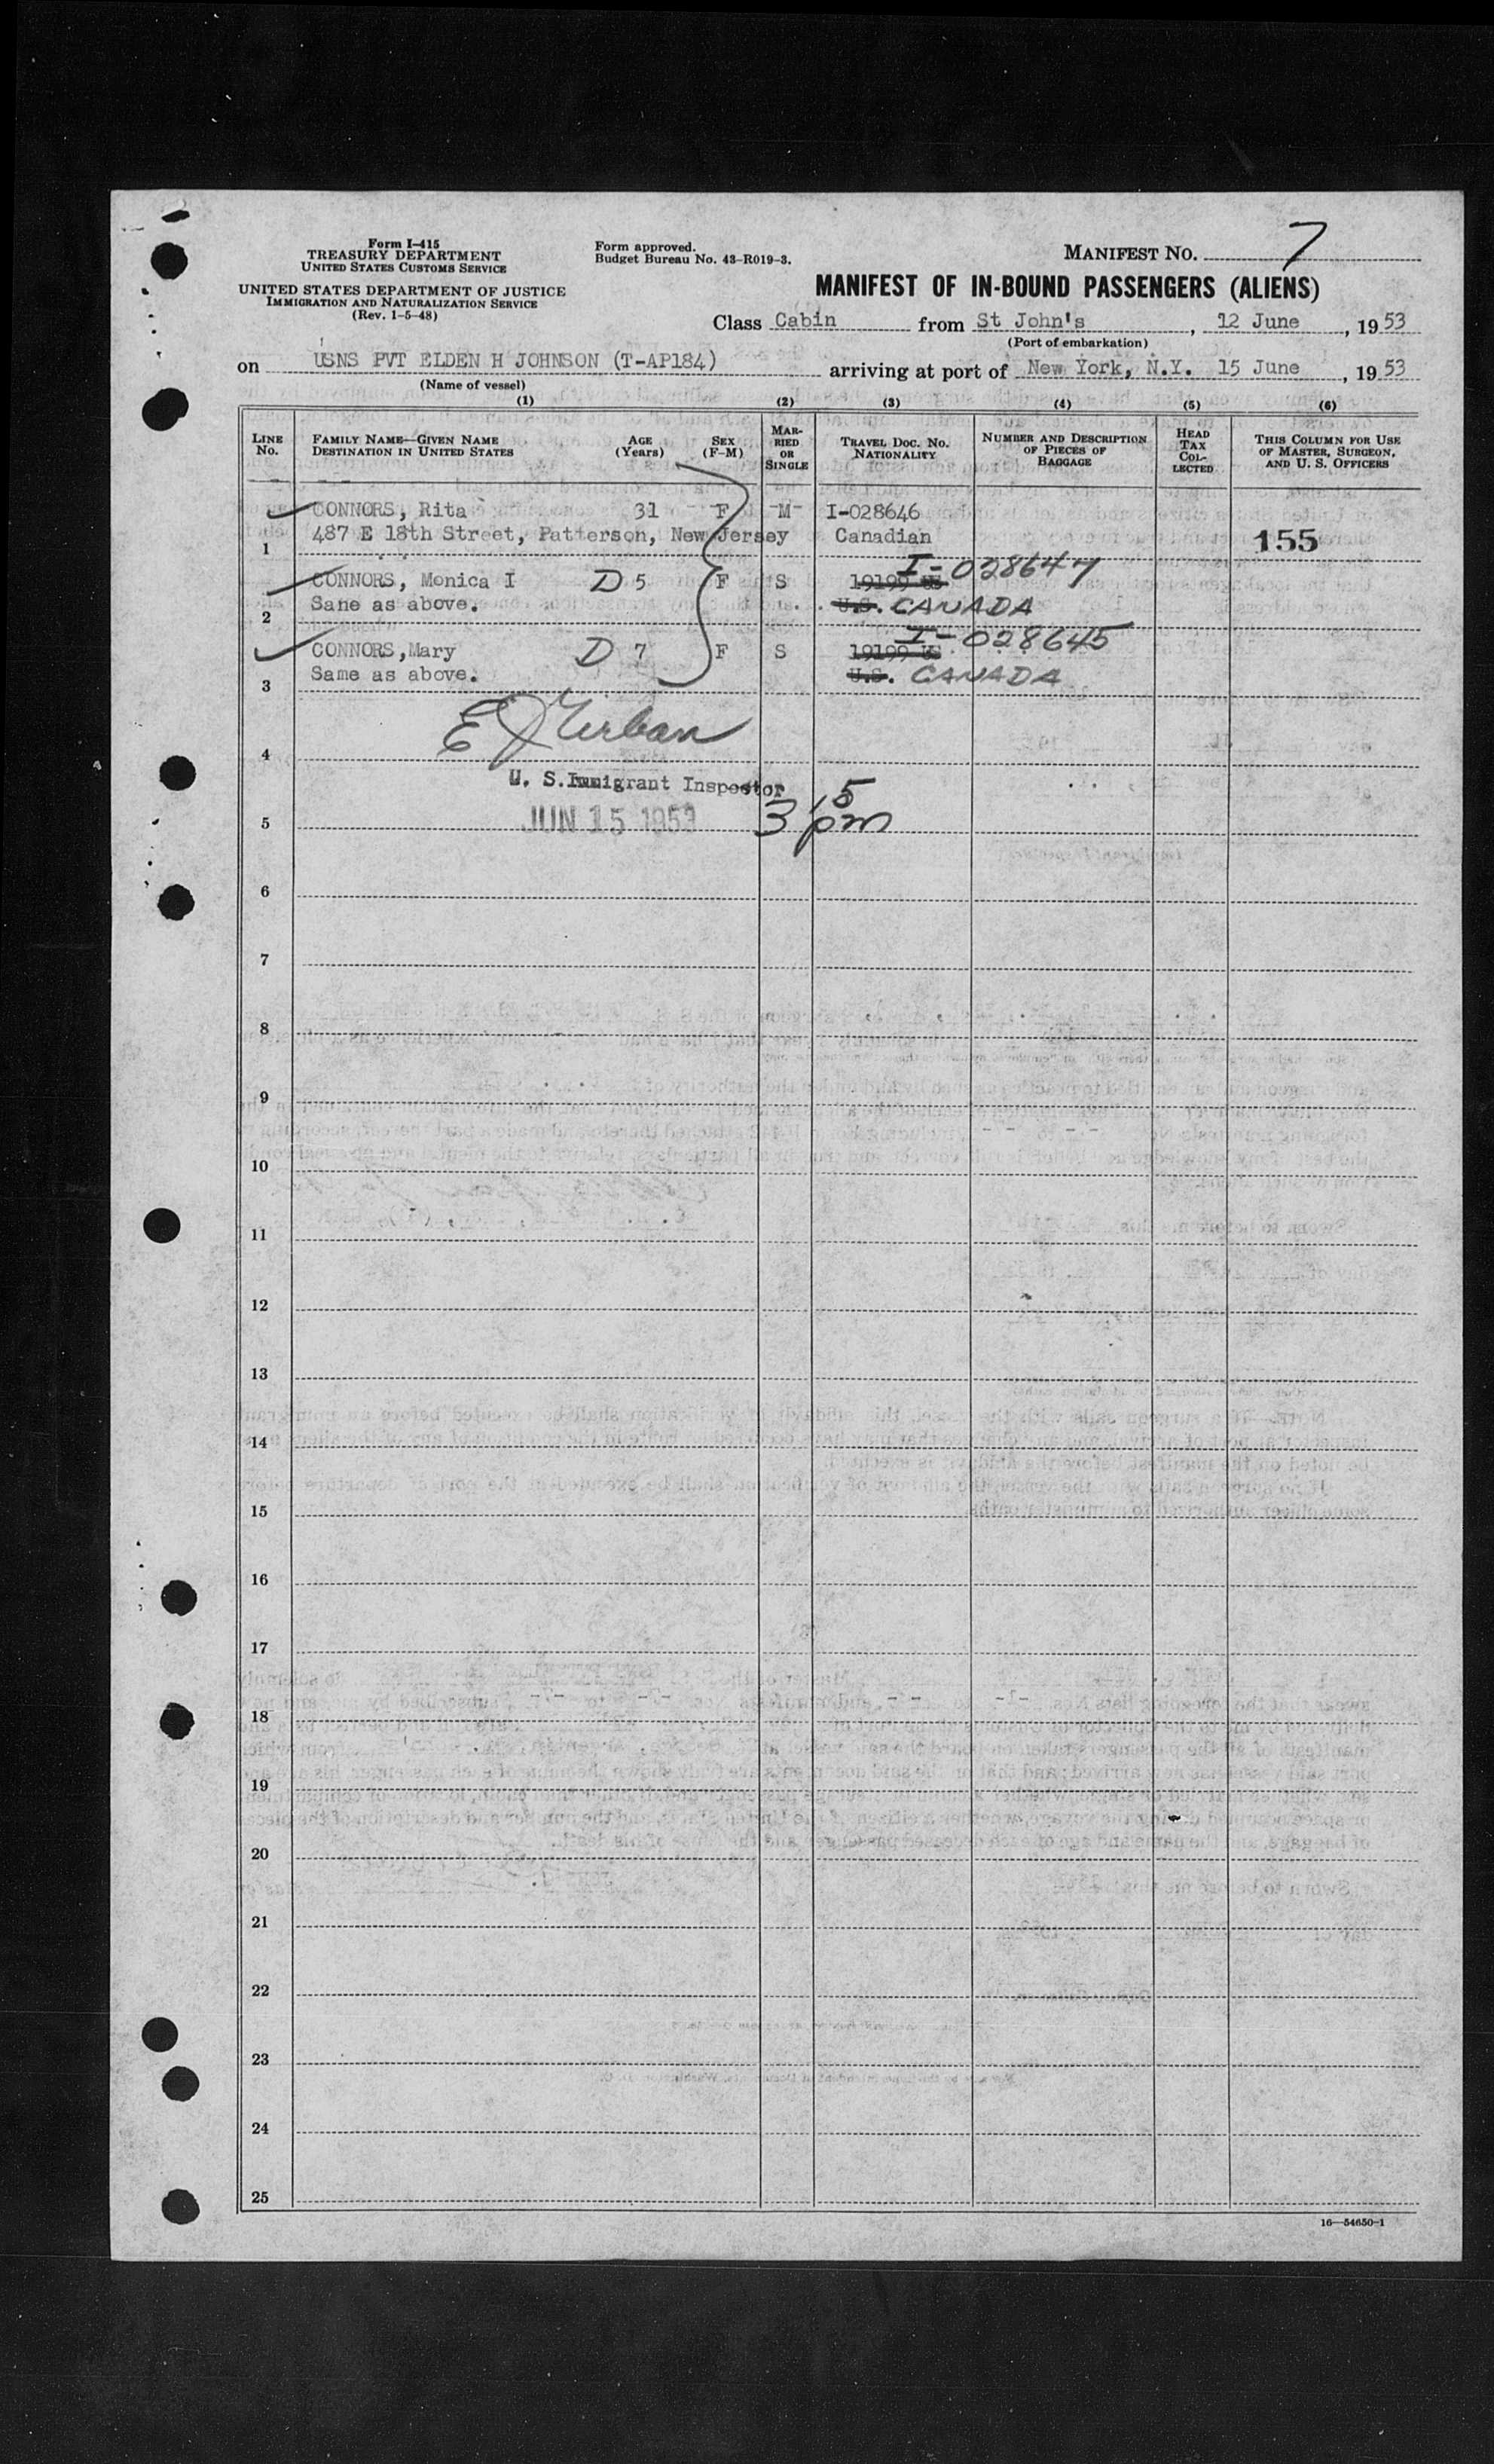 Form I-415
TREASURY DEPARTMENT
UNITED STATES CUSTOMS SERVICE
UNITED STATES DEPARTMENT OF JUSTICE
IMMIGRATION AND NATURALIZATION SERVICE
(Rev. 1-5-48)
Form approved.
Budget Bureau No. 43-R019-3.
MANIFEST NO. 7
MANIFEST OF IN-BOUND PASSENGERS (ALIENS)
Class Cabin from St John's, 12 June, 1953
(Port of embarkation)
on USNS PVT ELDEN H JOHNSON (T-AP184) arriving at port of New York, N.Y. 15 June, 1953
(Name of vessel)
(1) (2) (3) (4) (5) (6)
LINE No. FAMILY NAME—GIVEN NAME DESTINATION IN UNITED STATES AGE (Years) SEX (F-M) MARRIED OR SINGLE TRAVEL DOC. NO. NATIONALITY NUMBER AND DESCRIPTION OF PIECES OF BAGGAGE HEAD TAX COLLECTED THIS COLUMN FOR USE OF MASTER, SURGEON, AND U. S. OFFICERS
CONNORS, Rita 31 F M I-028646
1 487 E 18th Street, Patterson, New Jersey Canadian 155
CONNORS, Monica I D 5 F S 19199 US I-028647
2 Sane as above. U.S. CANADA
CONNORS,Mary D 7 F S 19199 US I-028645
3 Same as above. U.S. CANADA
4
U. S. Immigrant Inspector
5 JUN 15 1953 3 15 pm
6
7
8
9
10
11
12
13
14
15
16
17
18
19
20
21
22
23
24
25
16—54650-1